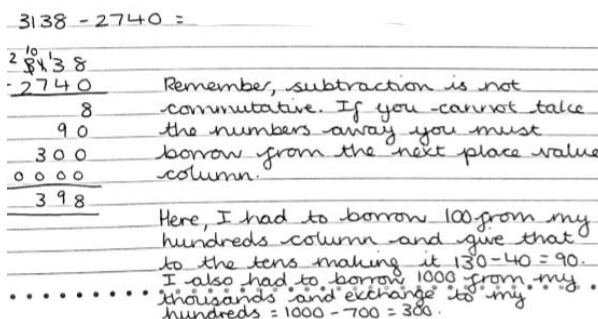 3138 - 2740 =
10
2 3 1 ¹3 8
- 2740
8
90
300
0000
398
Remember, subtraction is not
commutative. If you cannot take
the numbers away you must
borrow from the next place value
column.
Here, I had to borrow 100 from my
hundreds column and give that
to the tens making it 130-40 = 90.
I also had to borrow 1000 from my
thousands and exchange to my
hundreds = 1000 - 700 = 300.